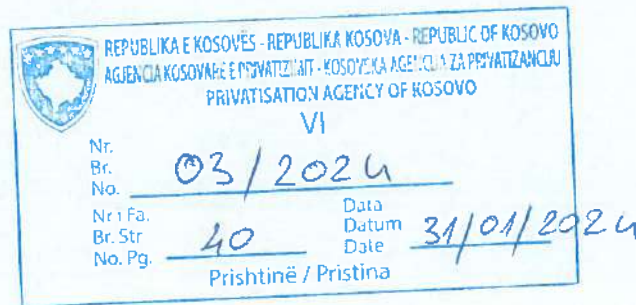 REPUBLIKA E KOSOVËS - REPUBLIKA KOSOVA - REPUBLIC OF KOSOVO
AGJENCIA KOSOVARE E PRIVATIZIMIT - KOSOVSKA AGENCIJA ZA PRIVATIZACIJU
PRIVATISATION AGENCY OF KOSOVO
VI
Nr.
Br.
No. 03/2024
Nr i Fa.
Br. Str
No. Pg. 40
Data
Datum
Date 31/01/2024
Prishtinë / Pristina